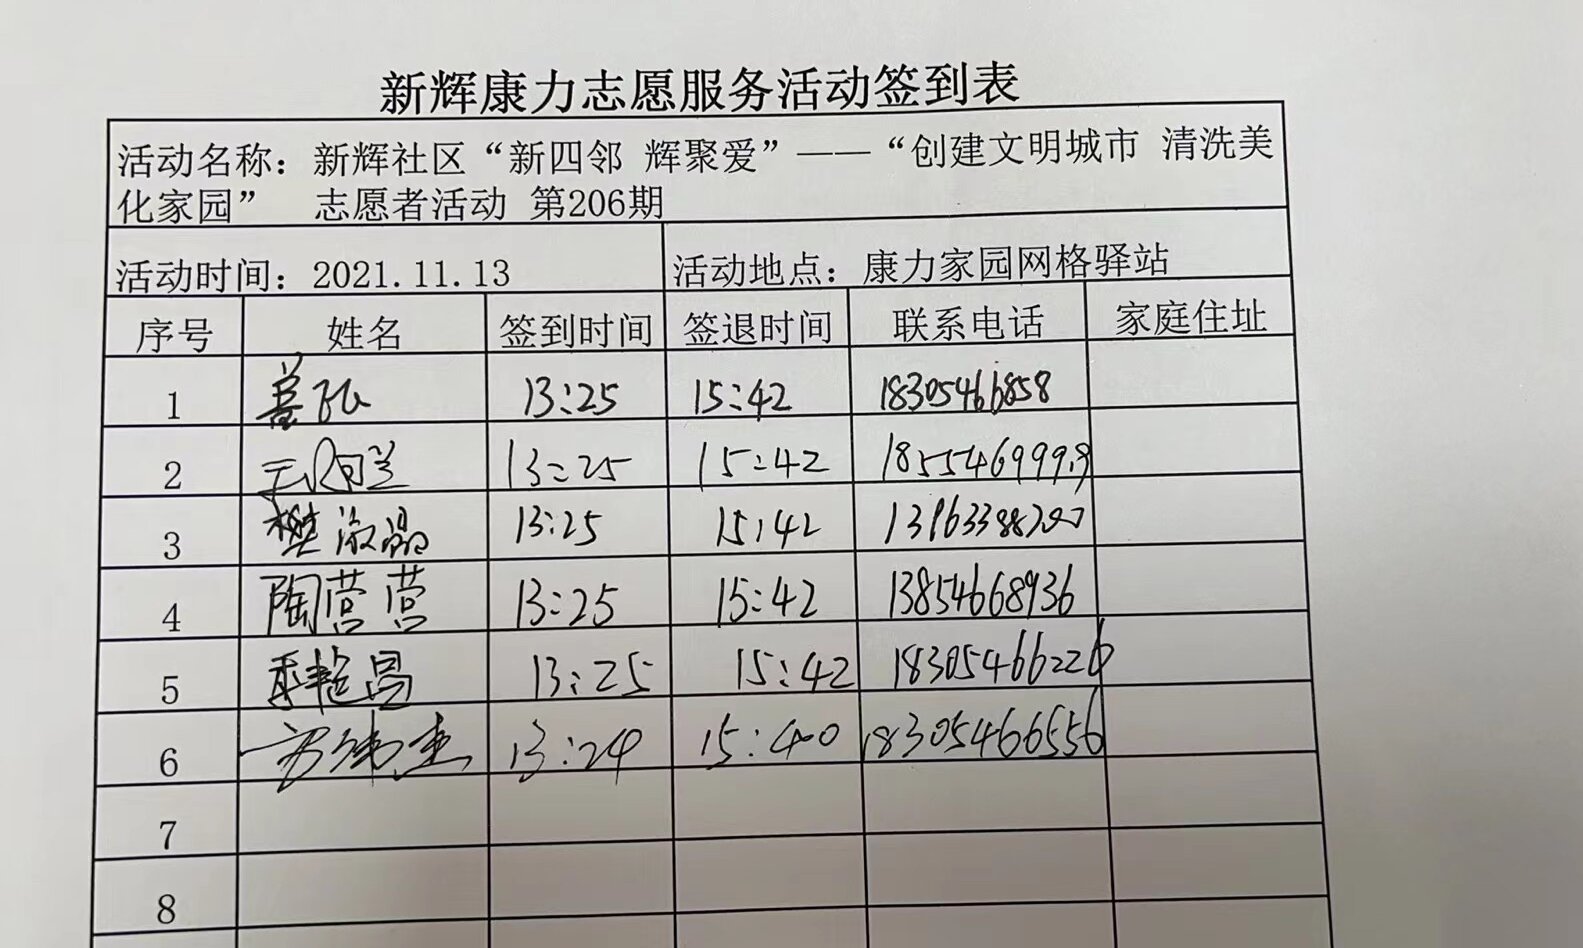 新辉康力志愿服务活动签到表
活动名称：新辉社区“新四邻 辉聚爱”——“创建文明城市 清洗美
化家园” 志愿者活动 第206期
活动时间：2021.11.13 活动地点：康力家园网格驿站
序号 姓名 签到时间 签退时间 联系电话 家庭住址
1 13:25 15:42 18305466858
2 13:25 15:42
3 樊 13:25 15:42
4 陶营营 13:25 15:42 13854668936
5 13:25 15:42 18305466226
6 13:24 15:40 18305466556
7
8